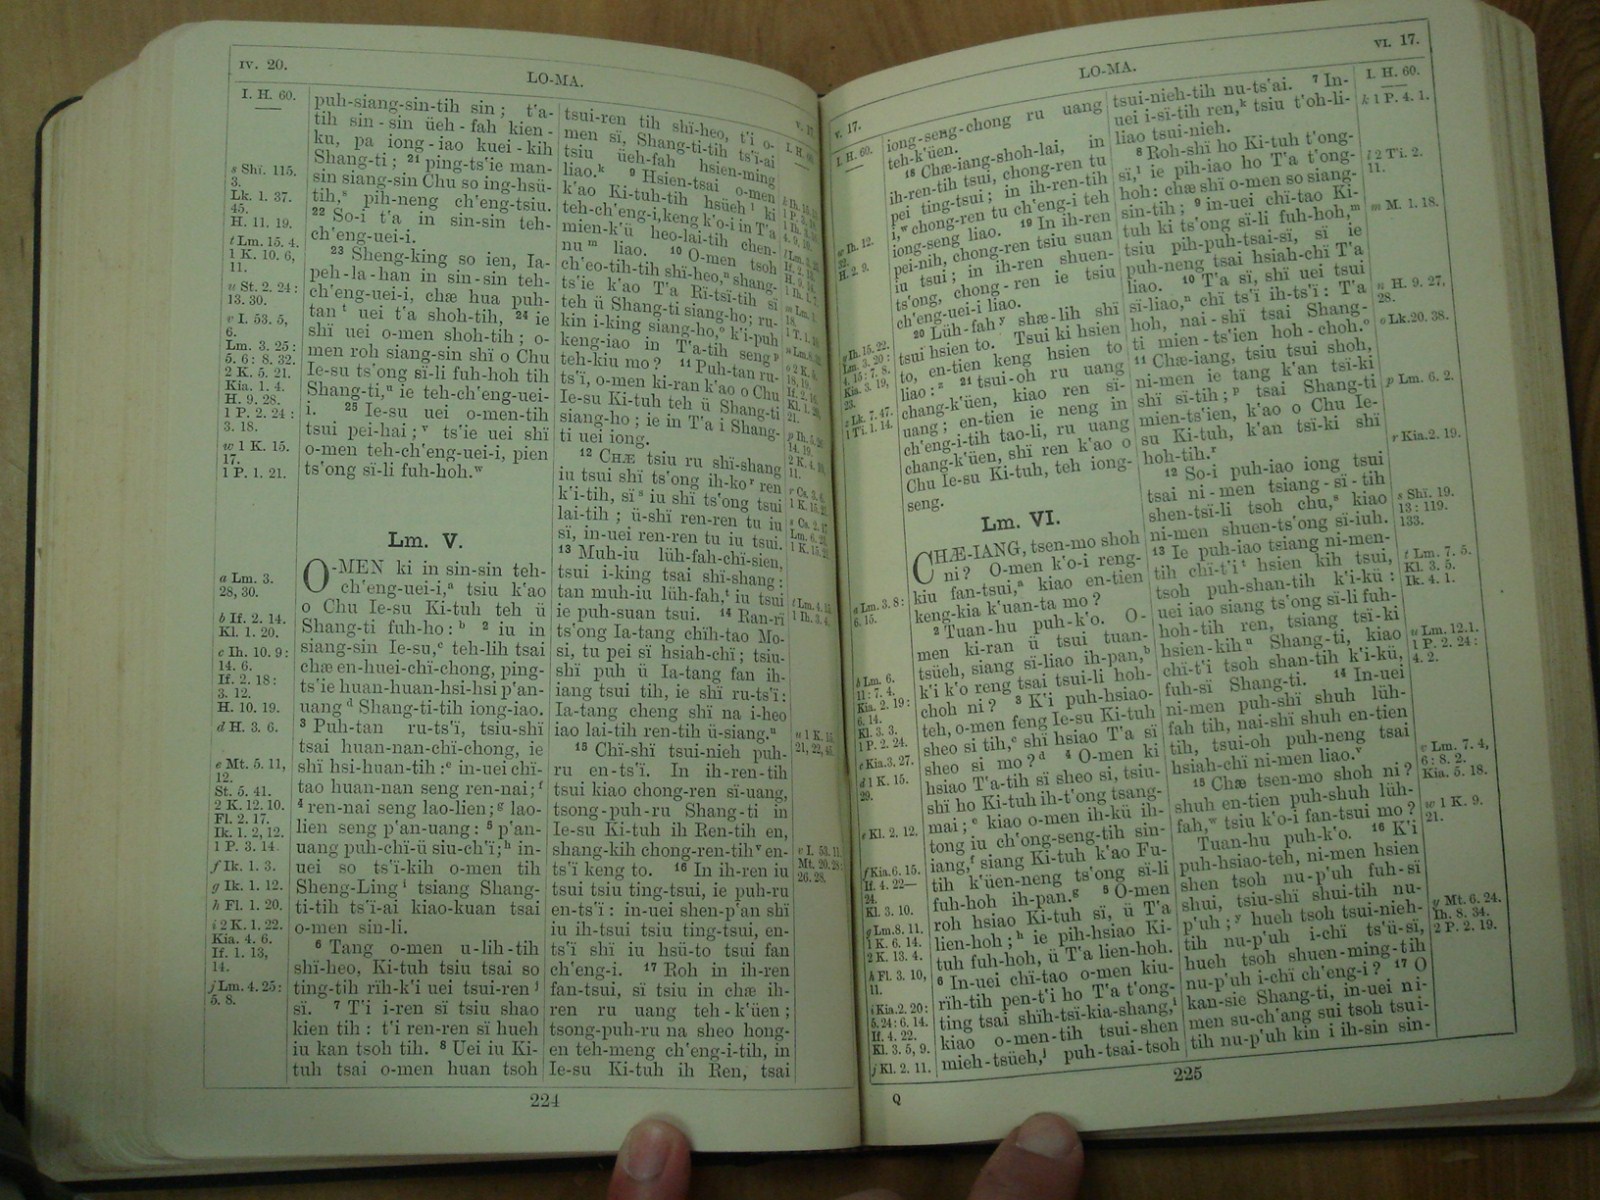 IV. 20.
LO-MA.
I. H. 60.
s Shï. 115.
3.
Lk. 1. 37.
45.
H. 11. 19.
t Lm. 15. 4.
1 K. 10. 6,
11.
u St. 2. 24:
13. 30.
v I. 53. 5,
6.
Lm. 3. 25:
5. 6: 8. 32.
2 K. 5. 21.
Kia. 1. 4.
H. 9. 28.
1 P. 2. 24:
3. 18.
w 1 K. 15.
17.
1 P. 1. 21.
a Lm. 3.
28, 30.
b If. 2. 14.
Kl. 1. 20.
c Ih. 10. 9:
14. 6.
If. 2. 18:
3. 12.
H. 10. 19.
d H. 3. 6.
e Mt. 5. 11,
12.
St. 5. 41.
2 K. 12. 10.
Fl. 2. 17.
Ik. 1. 2, 12.
1 P. 3. 14.
f Ik. 1. 3.
g Ik. 1. 12.
h Fl. 1. 20.
i 2 K. 1. 22.
Kia. 4. 6.
If. 1. 13,
14.
j Lm. 4. 25:
5. 8.
puh-siang-sin-tih sin; t'a-
tih sin-sin üeh-fah kien-
ku, pa iong-iao kuei-kih
Shang-ti; 21 ping-ts'ie man-
sin siang-sin Chu so ing-hsü-
tih,s pih-neng ch'eng-tsiu.
22 So-i t'a in sin-sin teh-
ch'eng-uei-i.
23 Sheng-king so ien, Ia-
peh-la-han in sin-sin teh-
ch'eng-uei-i, chæ hua puh-
tan t uei t'a shoh-tih, 24 ie
shï uei o-men shoh-tih; o-
men roh siang-sin shï o Chu
Ie-su ts'ong sï-li fuh-hoh tih
Shang-ti,u ie teh-ch'eng-uei-
i. 25 Ie-su uei o-men-tih
tsui pei-hai;v ts'ie uei shï
o-men teh-ch'eng-uei-i, pien
ts'ong sï-li fuh-hoh.w
Lm. V.
O-MEN ki in sin-sin teh-
ch'eng-uei-i,a tsiu k'ao
o Chu Ie-su Ki-tuh teh ü
Shang-ti fuh-ho:b 2 iu in
siang-sin Ie-su,c teh-lih tsai
chæ en-huei-chï-chong, ping-
ts'ie huan-huan-hsi-hsi p'an-
uang d Shang-ti-tih iong-iao.
3 Puh-tan ru-ts'ï, tsiu-shï
tsai huan-nan-chï-chong, ie
shï hsi-huan-tih:e in-uei chï-
tao huan-nan seng ren-nai;f
4 ren-nai seng lao-lien;g lao-
lien seng p'an-uang: 5 p'an-
uang puh-chï-ü siu-ch'ï;h in-
uei so ts'ï-kih o-men tih
Sheng-Ling i tsiang Shang-
ti-tih ts'ï-ai kiao-kuan tsai
o-men sin-li.
6 Tang o-men u-lih-tih
shï-heo, Ki-tuh tsiu tsai so
ting-tih rïh-k'i uei tsui-ren j
sï. 7 T'i i-ren sï tsiu shao
kien tih: t'i ren-ren sï hueh
iu kan tsoh tih. 8 Uei iu Ki-
tuh tsai o-men huan tsoh
tsui-ren tih shï-heo, t'i o-
men sï, Shang-ti-tih ts'ï-ai
tsiu üeh-fah hsien-ming
liao.k 9 Hsien-tsai o-men
k'ao Ki-tuh-tih hsüeh l ki
teh-ch'eng-i, keng k'o-i in T'a
mien-k'ü heo-lai-tih chen-
nu m liao. 10 O-men tsoh
ch'eo-tih-tih shï-heo,n shang-
ts'ie k'ao T'a Rï-tsï-tih sï
teh ü Shang-ti siang-ho; ru-
kin i-king siang-ho,o k'i-puh
keng-iao in T'a-tih seng p
teh-kiu mo? 11 Puh-tan ru-
ts'ï, o-men ki-ran k'ao o Chu
Ie-su Ki-tuh teh ü Shang-ti
siang-ho; ie in T'a i Shang-
ti uei iong.
12 CHÆ tsiu ru shï-shang
iu tsui shï ts'ong ih-ko r ren
k'i-tih, sï s iu shï ts'ong tsui
lai-tih; ü-shï ren-ren tu iu
sï, in-uei ren-ren tu iu tsui.
13 Muh-iu lüh-fah-chï-sien,
tsui i-king tsai shï-shang:
tan muh-iu lüh-fah,t iu tsui
ie puh-suan tsui. 14 Ran-rï
ts'ong Ia-tang chïh-tao Mo-
si, tu pei sï hsiah-chï; tsiu-
shï puh ü Ia-tang fan ih-
iang tsui tih, ie shï ru-ts'ï:
Ia-tang cheng shï na i-heo
iao lai-tih ren-tih ü-siang.u
15 Chï-shï tsui-nieh puh-
ru en-ts'ï. In ih-ren-tih
tsui kiao chong-ren sï-uang,
tsong-puh-ru Shang-ti in
Ie-su Ki-tuh ih Ren-tih en,
shang-kih chong-ren-tih v en-
ts'ï keng to. 16 In ih-ren iu
tsui tsiu ting-tsui, ie puh-ru
en-ts'ï: in-uei shen-p'an shï
iu ih-tsui tsiu ting-tsui, en-
ts'ï shï iu hsü-to tsui fan
ch'eng-i. 17 Roh in ih-ren
fan-tsui, sï tsiu in chæ ih-
ren ru uang teh-k'üen;
tsong-puh-ru na sheo hong-
en teh-meng ch'eng-i-tih, in
Ie-su Ki-tuh ih Ren, tsai
u 1 K. 15.
21, 22, 45.
v I. 53. 11.
Mt. 20. 28:
26. 28.
224
v. 17.
LO-MA.
VI. 17.
I. H. 60.
w Ih. 12.
32.
H. 2. 9.
y Ih. 15. 22.
Lm. 3. 20:
4. 15: 7. 8.
Kia. 3. 19,
23.
z Lk. 7. 47.
1 Ti. 1. 14.
a Lm. 3. 8:
6. 15.
b Lm. 6.
11: 7. 4.
Kia. 2. 19:
6. 14.
Kl. 3. 3.
1 P. 2. 24.
c Kia. 3. 27.
d 1 K. 15.
29.
e Kl. 2. 12.
f Kia. 6. 15.
If. 4. 22—
24.
Kl. 3. 10.
g Lm. 8. 11.
1 K. 6. 14.
2 K. 13. 4.
h Fl. 3. 10,
11.
i Kia. 2. 20:
5. 24: 6. 14.
If. 4. 22.
Kl. 3. 5, 9.
j Kl. 2. 11.
iong-seng-chong ru uang
teh-k'üen.
18 Chæ-iang-shoh-lai, in
ih-ren-tih tsui, chong-ren tu
pei ting-tsui; in ih-ren-tih
i,w chong-ren tu ch'eng-i teh
iong-seng liao. 19 In ih-ren
pei-nih, chong-ren tsiu suan
iu tsui; in ih-ren shuen-
ts'ong, chong-ren ie tsiu
ch'eng-uei-i liao.
20 Lüh-fah y shæ-lih shï
tsui hsien to. Tsui ki hsien
to, en-tien keng hsien to
liao:z 21 tsui-oh ru uang
chang-k'üen, kiao ren sï-
uang; en-tien ie neng in
ch'eng-i-tih tao-li, ru uang
chang-k'üen, shï ren k'ao o
Chu Ie-su Ki-tuh, teh iong-
seng.
Lm. VI.
CHÆ-IANG, tsen-mo shoh
ni? O-men k'o-i reng-
kiu fan-tsui,a kiao en-tien
keng-kia k'uan-ta mo?
2 Tuan-hu puh-k'o. O-
men ki-ran ü tsui tuan-
tsüeh, siang sï-liao ih-pan,b
k'i k'o reng tsai tsui-li hoh-
choh ni? 3 K'i puh-hsiao-
teh, o-men feng Ie-su Ki-tuh
sheo si tih,c shï hsiao T'a sï
sheo si mo?d 4 O-men ki
hsiao T'a-tih sï sheo si, tsiu-
shï ho Ki-tuh ih-t'ong tsang-
mai;e kiao o-men ih-kü ih-
tong iu ch'ong-seng-tih sin-
iang,f siang Ki-tuh k'ao Fu-
tih k'üen-neng ts'ong sï-li
fuh-hoh ih-pan.g 5 O-men
roh hsiao Ki-tuh sï, ü T'a
lien-hoh;h ie pih-hsiao Ki-
tuh fuh-hoh, ü T'a lien-hoh.
6 In-uei chï-tao o-men kiu-
rïh-tih pen-t'i ho T'a t'ong-
ting tsai shïh-tsï-kia-shang,i
kiao o-men-tih tsui-shen
mieh-tsüeh,j puh-tsai-tsoh
tsui-nieh-tih nu-ts'ai. 7 In-
uei i-sï-tih ren,k tsiu t'oh-li-
liao tsui-nieh.
8 Roh-shï ho Ki-tuh t'ong-
sï,l ie pih-iao ho T'a t'ong-
hoh: chæ shï o-men so siang-
sin-tih; 9 in-uei chï-tao Ki-
tuh ki ts'ong sï-li fuh-hoh,m
tsiu pih-puh-tsai-sï, sï ie
puh-neng tsai hsiah-chï T'a
liao. 10 T'a sï, shï uei tsui
sï-liao,n chï ts'ï ih-ts'ï: T'a
hoh, nai-shï tsai Shang-
ti mien-ts'ien hoh-choh.o
11 Chæ-iang, tsiu tsui shoh,
ni-men ie tang k'an tsï-ki
shï sï-tih;p tsai Shang-ti
mien-ts'ien, k'ao o Chu Ie-
su Ki-tuh, k'an tsï-ki shï
hoh-tih.r
12 So-i puh-iao iong tsui
tsai ni-men tsiang-sï-tih
shen-tsï-li tsoh chu,s kiao
ni-men shuen-ts'ong sï-iuh.
13 Ie puh-iao tsiang ni-men-
tih chï-t'i t hsien kih tsui,
tsoh puh-shan-tih k'i-kü:
uei iao siang ts'ong sï-li fuh-
hoh-tih ren, tsiang tsï-ki
hsien-kih u Shang-ti, kiao
chï-t'i tsoh shan-tih k'i-kü,
fuh-sï Shang-ti. 14 In-uei
ni-men puh-shï shuh lüh-
fah tih, nai-shï shuh en-tien
tih, tsui-oh puh-neng tsai
hsiah-chï ni-men liao.v
15 Chæ tsen-mo shoh ni?
shuh en-tien puh-shuh lüh-
fah,w tsiu k'o-i fan-tsui mo?
Tuan-hu puh-k'o. 16 K'i
puh-hsiao-teh, ni-men hsien
shen tsoh nu-p'uh fuh-sï
shui, tsiu-shï shui-tih nu-
p'uh;y hueh tsoh tsui-nieh-
tih nu-p'uh i-chï ts'ü-sï,
hueh tsoh shuen-ming-tih
nu-p'uh i-chï ch'eng-i? 17 O
kan-sie Shang-ti, in-uei ni-
men su-ch'ang sui tsoh tsui-
tih nu-p'uh kin i ih-sin sin-
I. H. 60.
k 1 P. 4. 1.
l 2 Ti. 2.
11.
m M. 1. 18.
n H. 9. 27,
28.
o Lk. 20. 38.
p Lm. 6. 2.
r Kia. 2. 19.
s Shï. 19.
13: 119.
133.
t Lm. 7. 5.
Kl. 3. 5.
Ik. 4. 1.
u Lm. 12. 1.
1 P. 2. 24:
4. 2.
v Lm. 7. 4,
6: 8. 2.
Kia. 5. 18.
w 1 K. 9.
21.
y Mt. 6. 24.
Ih. 8. 34.
2 P. 2. 19.
225
Q